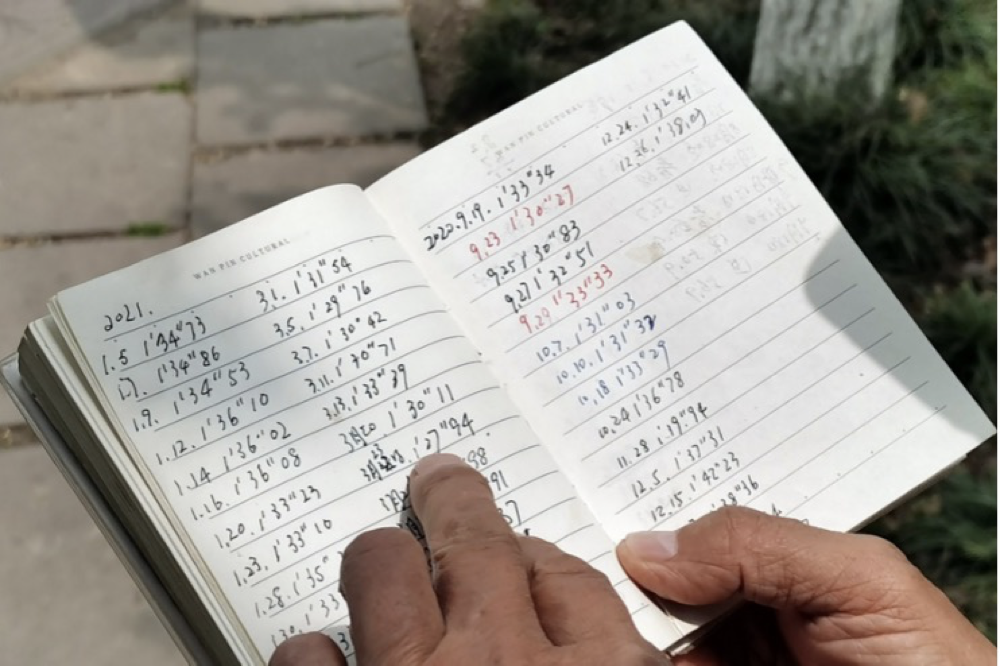 WAN PIN CULTURAL
2021.
1.5 1'34"73
1'34"86
1.9. 1'34"53
1.12. 1'36"10
1.14 1'36"02
1.16. 1'36"08
1.20. 1'33"23
1.23. 1'33"10
1.28. 1'35"
3.1. 1'31"54
3.5. 1'29"76
3.7. 1'30"42
3.11. 1'30"71
3.13. 1'33"39
3月20 1'30"11
1'27"94
88
91
37
WAN PIN CULTURAL
2020.9.19. 1'33"34
9.23 1'30"27
9.25 1'30"83
9.27 1'32"51
9.29 1'33"33
10.7. 1'31"03
10.10. 1'31"32
10.18 1'33"29
10.24 1'36"78
11.28 1.19"94
12.5. 1'37"31
12.15. 1'42"23
12.24. 1'32"41
12.26. 1'38.09